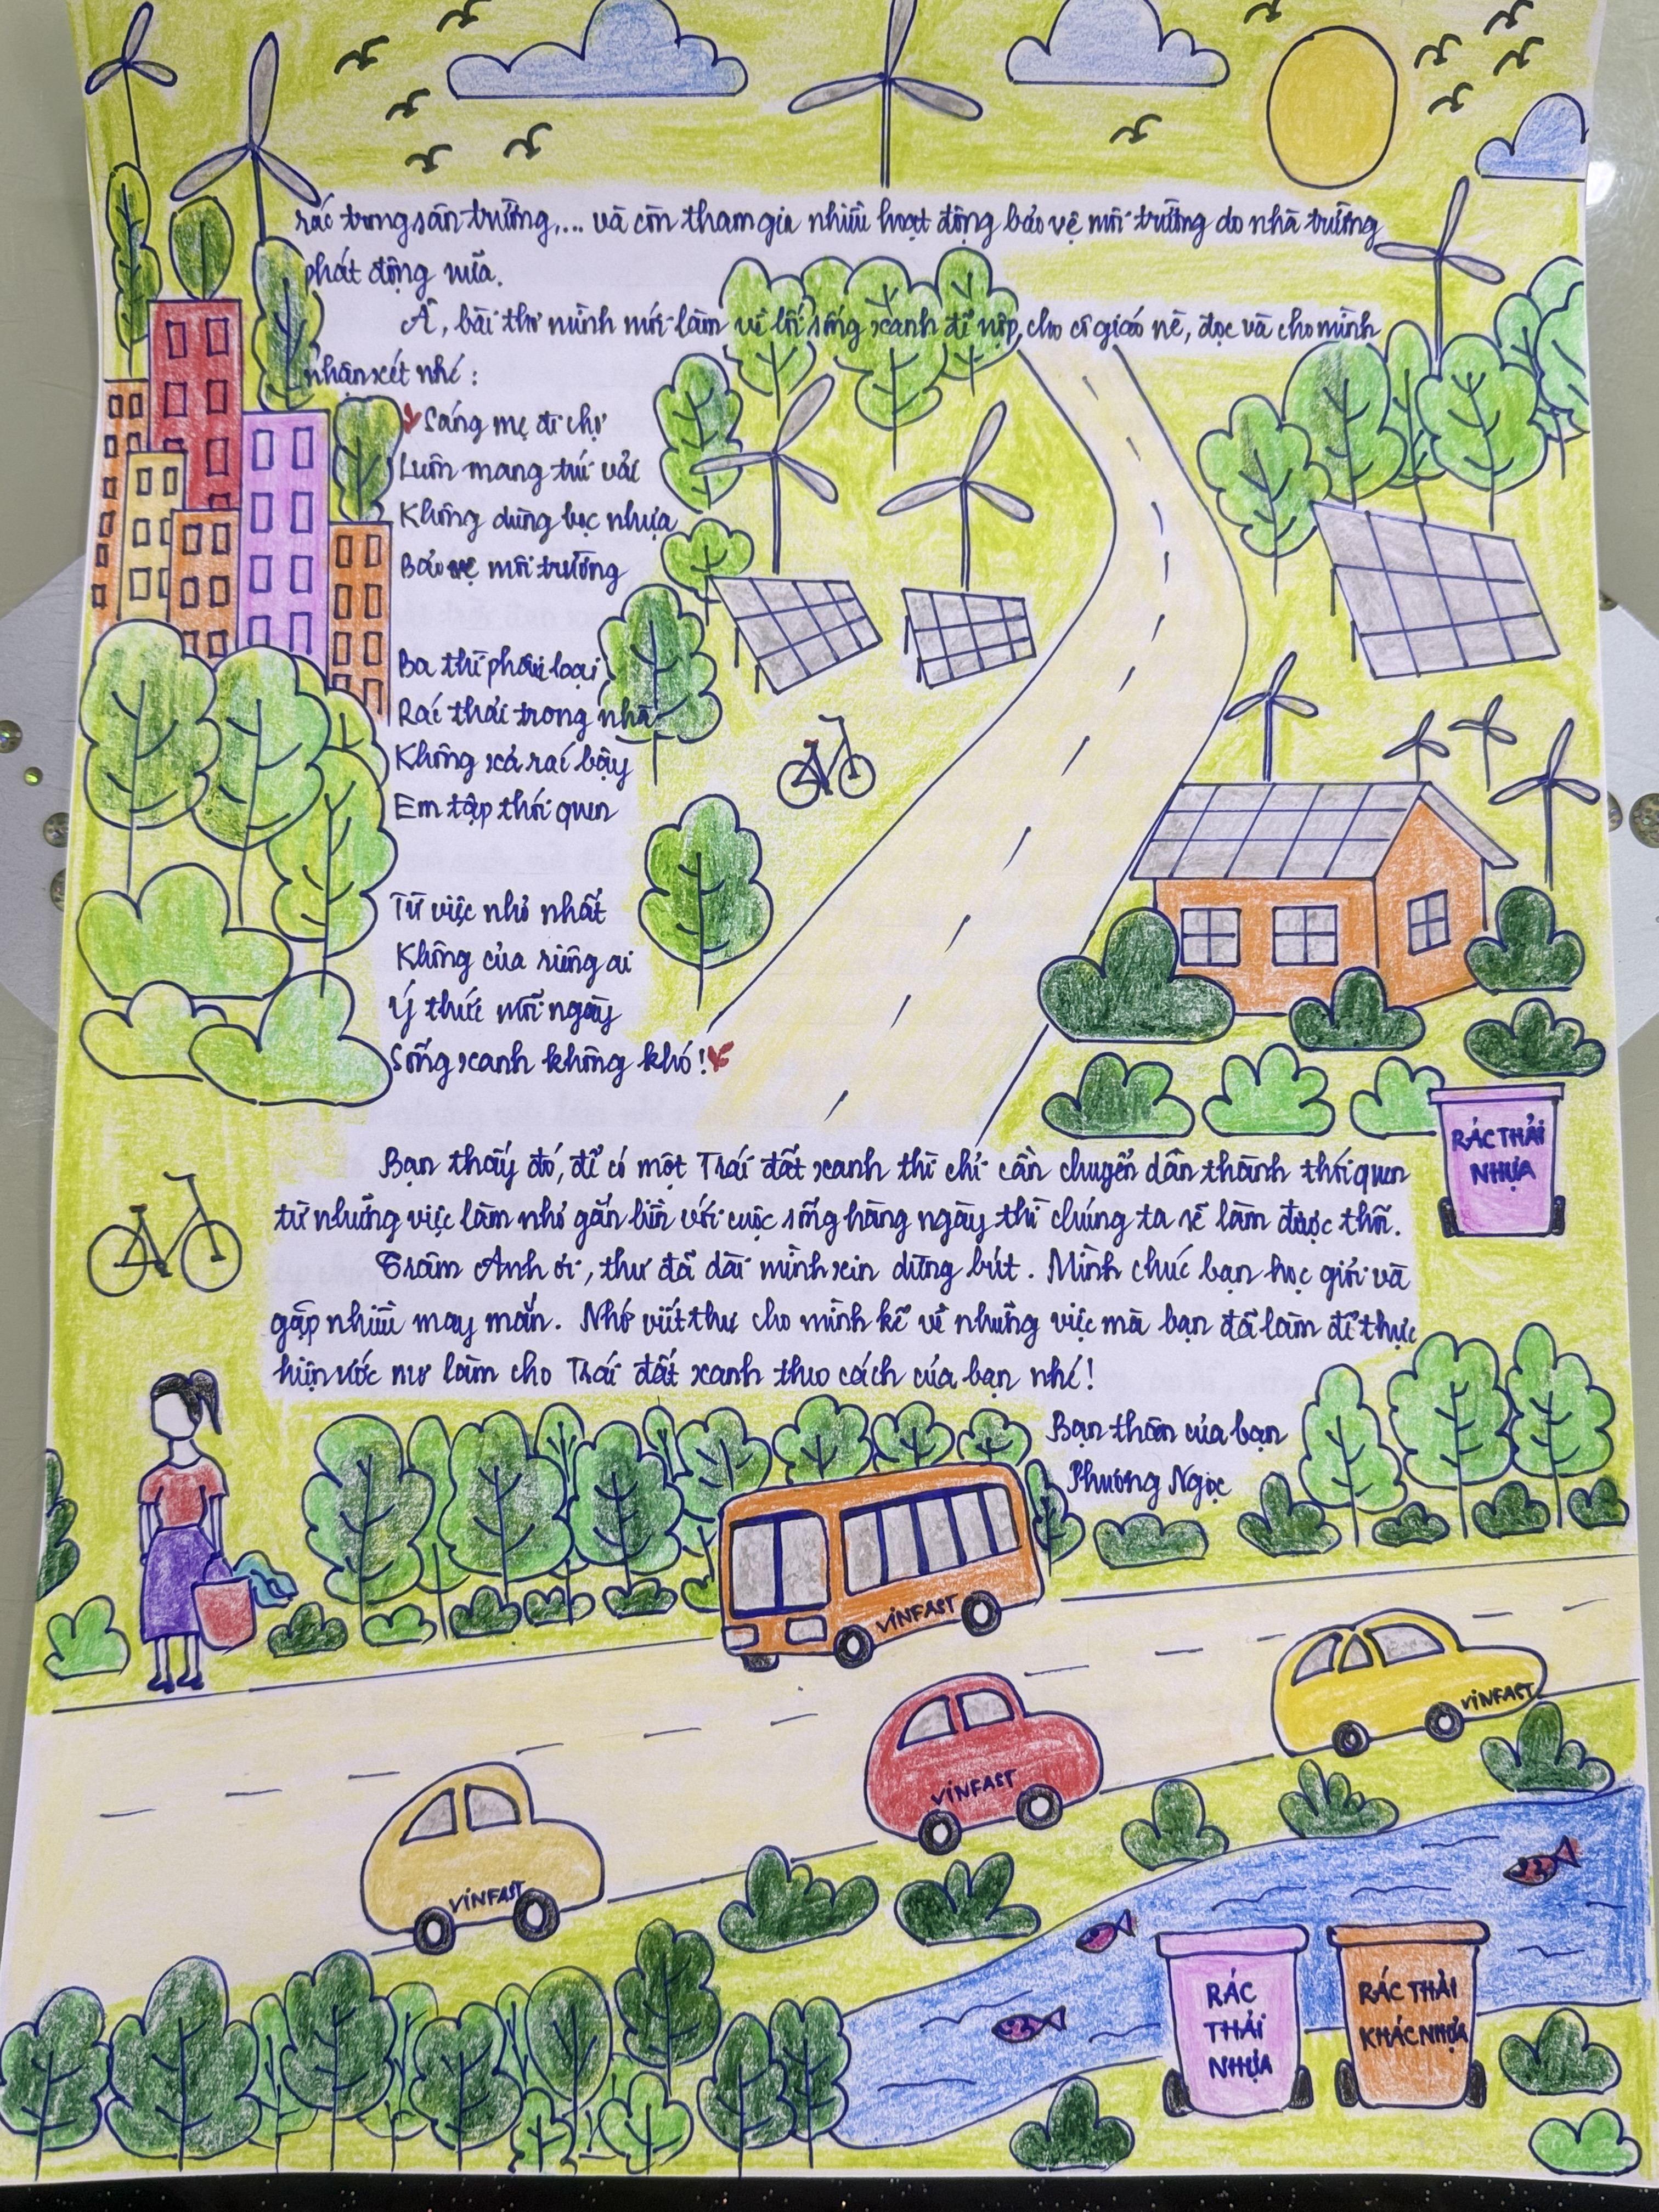 rác trong sân trường,... và còn tham gia nhiều hoạt động bảo vệ môi trường do nhà trường
phát động nữa.
À, bài thơ mình mới làm về lối sống xanh để nộp cho cô giáo nè, đọc và cho mình
nhận xét nhé:
Sáng mẹ đi chợ
Luôn mang túi vải
Không dùng bọc nhựa
Bảo vệ môi trường
Ba thì phân loại
Rác thải trong nhà
Không xả rác bậy
Em tập thói quen
Từ việc nhỏ nhất
Không của riêng ai
Ý thức mỗi ngày
Sống xanh không khó!
Bạn thấy đó, để có một Trái đất xanh thì chỉ cần chuyển dần thành thói quen
từ những việc làm nhỏ gắn liền với cuộc sống hàng ngày thì chúng ta sẽ làm được thôi.
Trâm Anh ơi, thư đã dài mình xin dừng bút. Mình chúc bạn học giỏi và
gặp nhiều may mắn. Nhớ viết thư cho mình kể về những việc mà bạn đã làm để thực
hiện ước mơ làm cho Trái đất xanh theo cách của bạn nhé!
Bạn thân của bạn
Phương Ngọc
RÁC THẢI
NHỰA
VINFAST
VINFAST
VINFAST
VINFAST
RÁC
THẢI
NHỰA
RÁC THẢI
KHÁC NHỰA